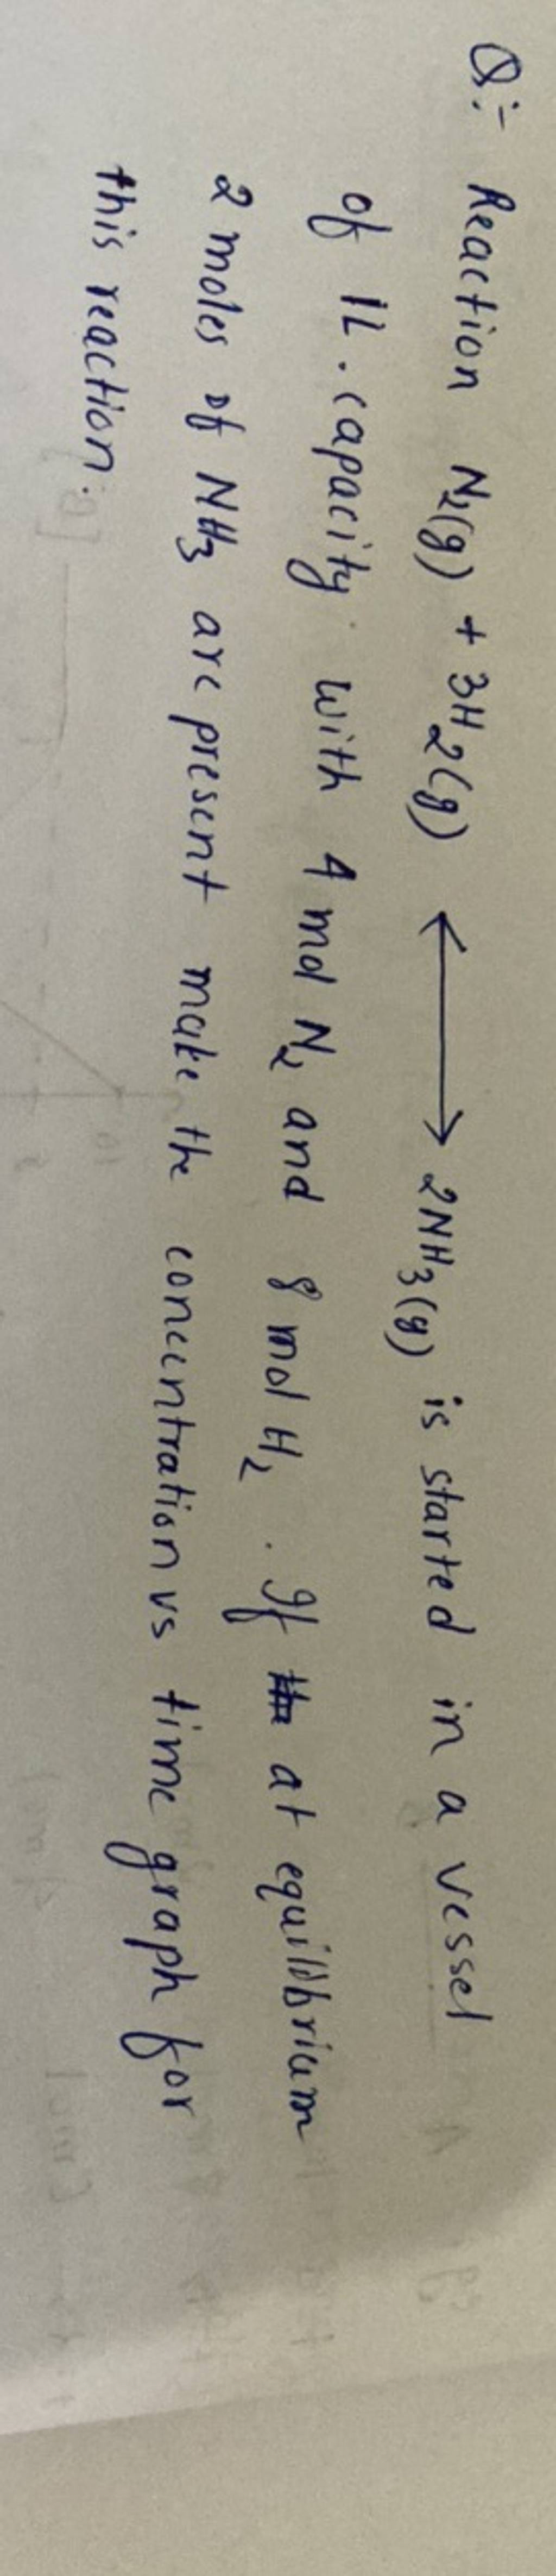 Q:- Reaction N2(g) + 3H2(g) ⟷ 2NH3(g) is started in a vessel
of 1L. capacity with 4 mol N2 and 8 mol H2. If at equilibrium
2 moles of NH3 are present make the concentration vs time graph for
this reaction.